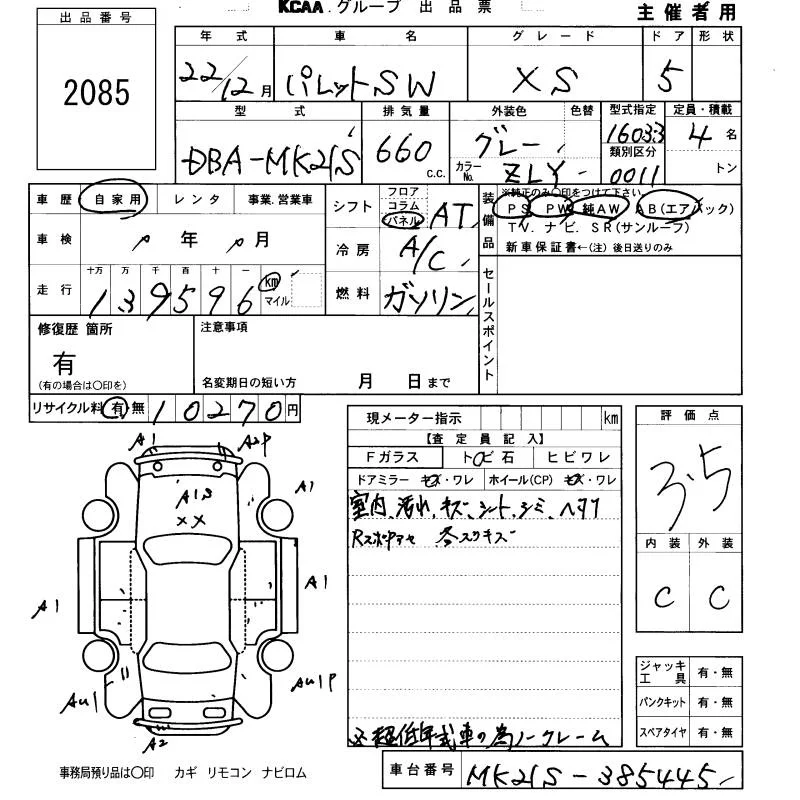 KCAA.グループ 出品票
主催者用
出品番号
2085
年式 車名 グレード ドア 形状
22/12月 パレットSW XS 5
型式 排気量 外装色 色替 型式指定 定員・積載
DBA-MK21S 660 C.C. グレー 16033 4名
カラーNo. ZLY 類別区分 0011 トン
車歴 自家用 レンタ 事業.営業車
シフト フロア コラム パネル AT
装備品 ※純正のみ〇印をつけて下さい
PS PW 純AW AB(エアバック)
TV. ナビ. SR(サンルーフ)
新車保証書←(注) 後日送りのみ
車検 年 月
冷房 A/C
走行 十万 万 千 百 十 一
139596 km マイル
燃料 ガソリン
セールスポイント
修復歴 箇所
有
(有の場合は〇印を)
注意事項
名変期日の短い方 月 日まで
リサイクル料 有 無 10270円
現メーター指示 km
【査定員記入】
Fガラス トビ石 ヒビワレ
ドアミラー キズ・ワレ ホイール(CP) キズ・ワレ
室内、汚れ、キズ、シート、シミ、ヘタリ
評価点
3.5
内装 外装
C C
A1 A2P
A1
A1S
XX
A1
A1
AU1
AU1P
A2
ジャッキ工具 有・無
パンクキット 有・無
スペアタイヤ 有・無
※超低年式車の為ノークレーム
事務局預り品は〇印 カギ リモコン ナビロム
車台番号 MK21S-385445